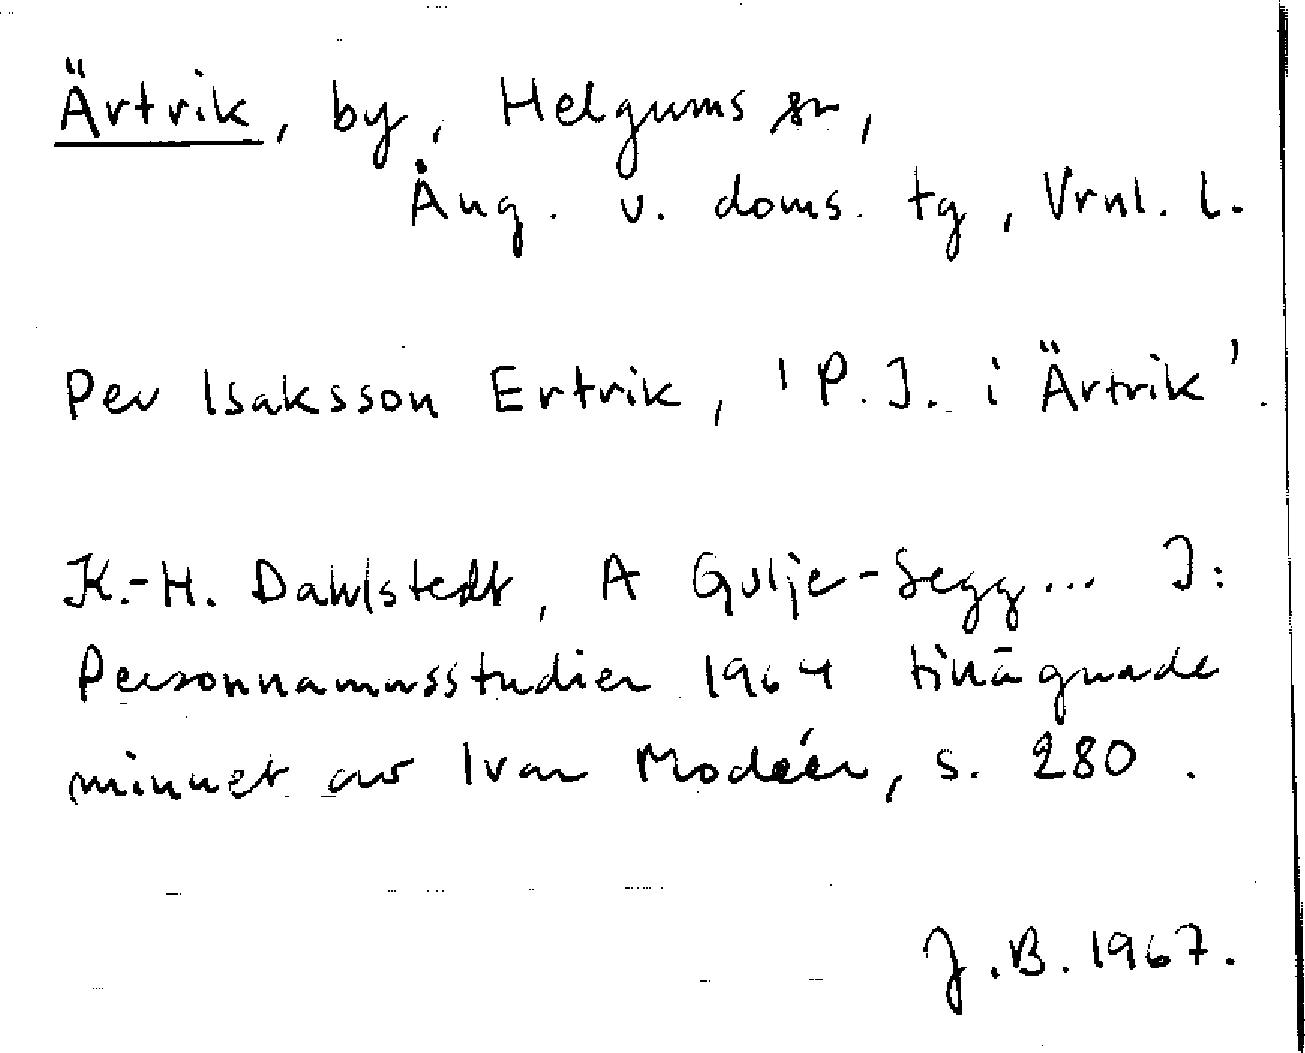 Ärtrik, by, Helgums sn,
Ång. v. doms. tg, Vrnl. l.
Per Isaksson Ertrik, 'P. I. i Ärtrik'.
K.-H. Dahlstedt, A Gulje-Segg... I:
Personnamnsstudier 1964 tillägnade
minnet av Ivar Modéer, s. 280.
J.B. 1967.